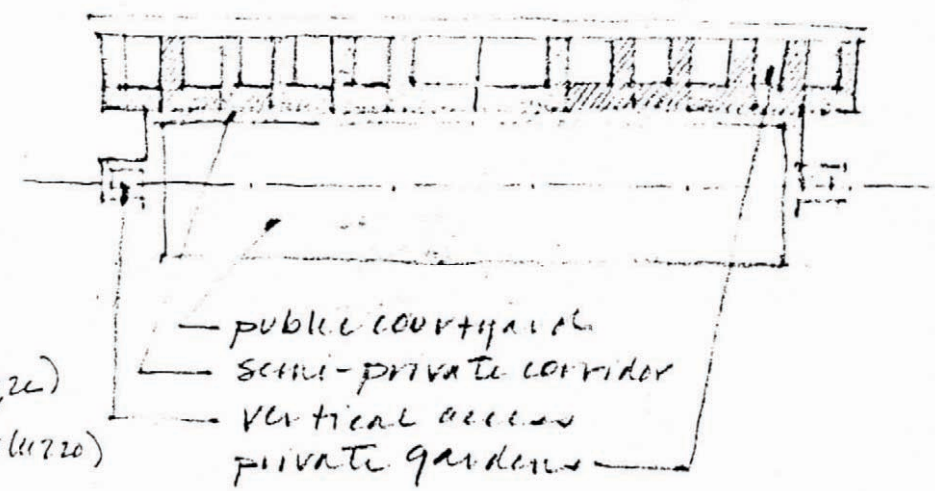 public courtyard
semi-private corridor
vertical access
private gardens